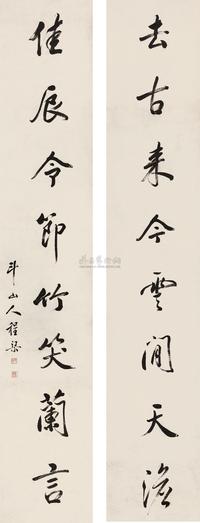 去古来今雲閒天澹
佳辰令節竹笑蘭言
斗山人程梁